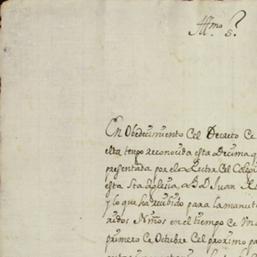 Illmo S.r
En Obedecimiento Del Decreto De
esta tengo reconocida esta Dezima q
presentada por el Rector Del Colegi
esta Sta Iglesia, a D. Juan
y lo que ha recibido para la manut
a los Niños en el tiempo De
primero De Octubre Del proximo pa